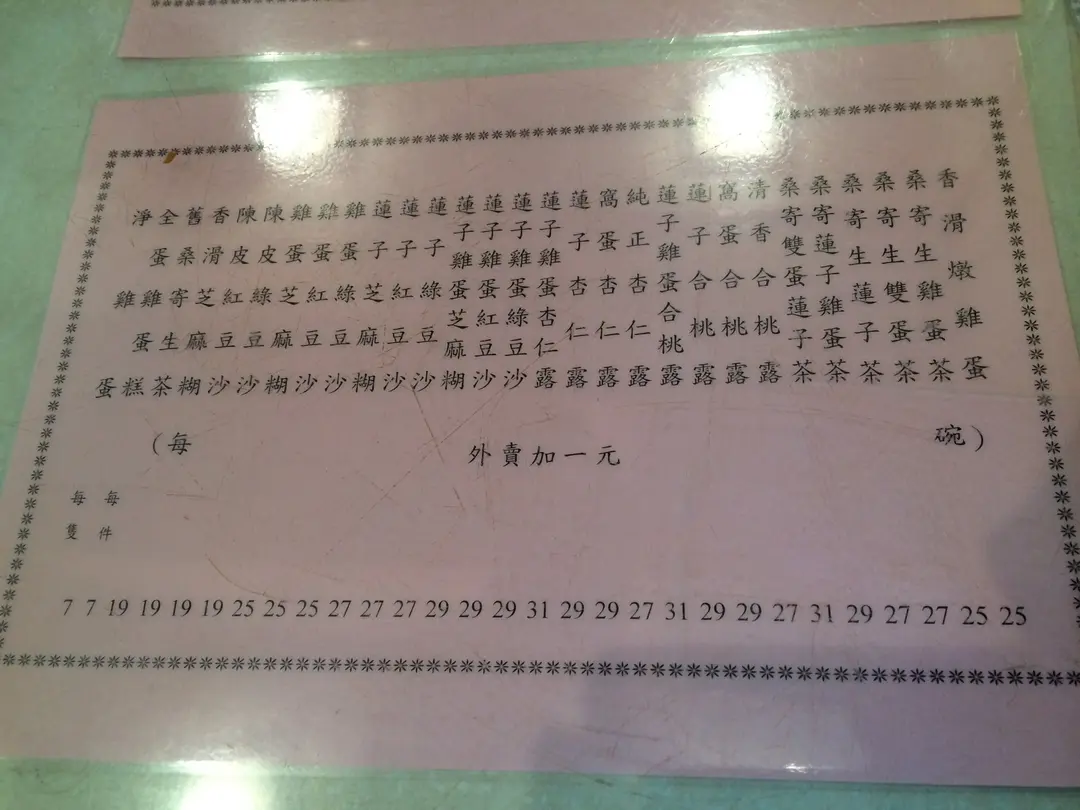 香滑燉雞蛋 25
桑寄生雞蛋茶 25
桑寄生雙蛋茶 27
桑寄生蓮子茶 27
桑寄蓮子雞蛋茶 29
桑寄雙蛋蓮子茶 31
清香合桃露 27
窩蛋合桃露 29
蓮子合桃露 29
蓮子雞蛋合桃露 31
純正杏仁露 27
窩蛋杏仁露 29
蓮子杏仁露 29
蓮子雞蛋杏仁露 31
蓮子雞蛋綠豆沙 29
蓮子雞蛋紅豆沙 29
蓮子雞蛋芝麻糊 29
蓮子綠豆沙 27
蓮子紅豆沙 27
蓮子芝麻糊 27
雞蛋綠豆沙 25
雞蛋紅豆沙 25
雞蛋芝麻糊 25
陳皮綠豆沙 19
陳皮紅豆沙 19
香滑芝麻糊 19
舊桑寄生茶 19
全蛋雞蛋糕 每件 7
淨雞蛋 每隻 7
(每碗)
外賣加一元